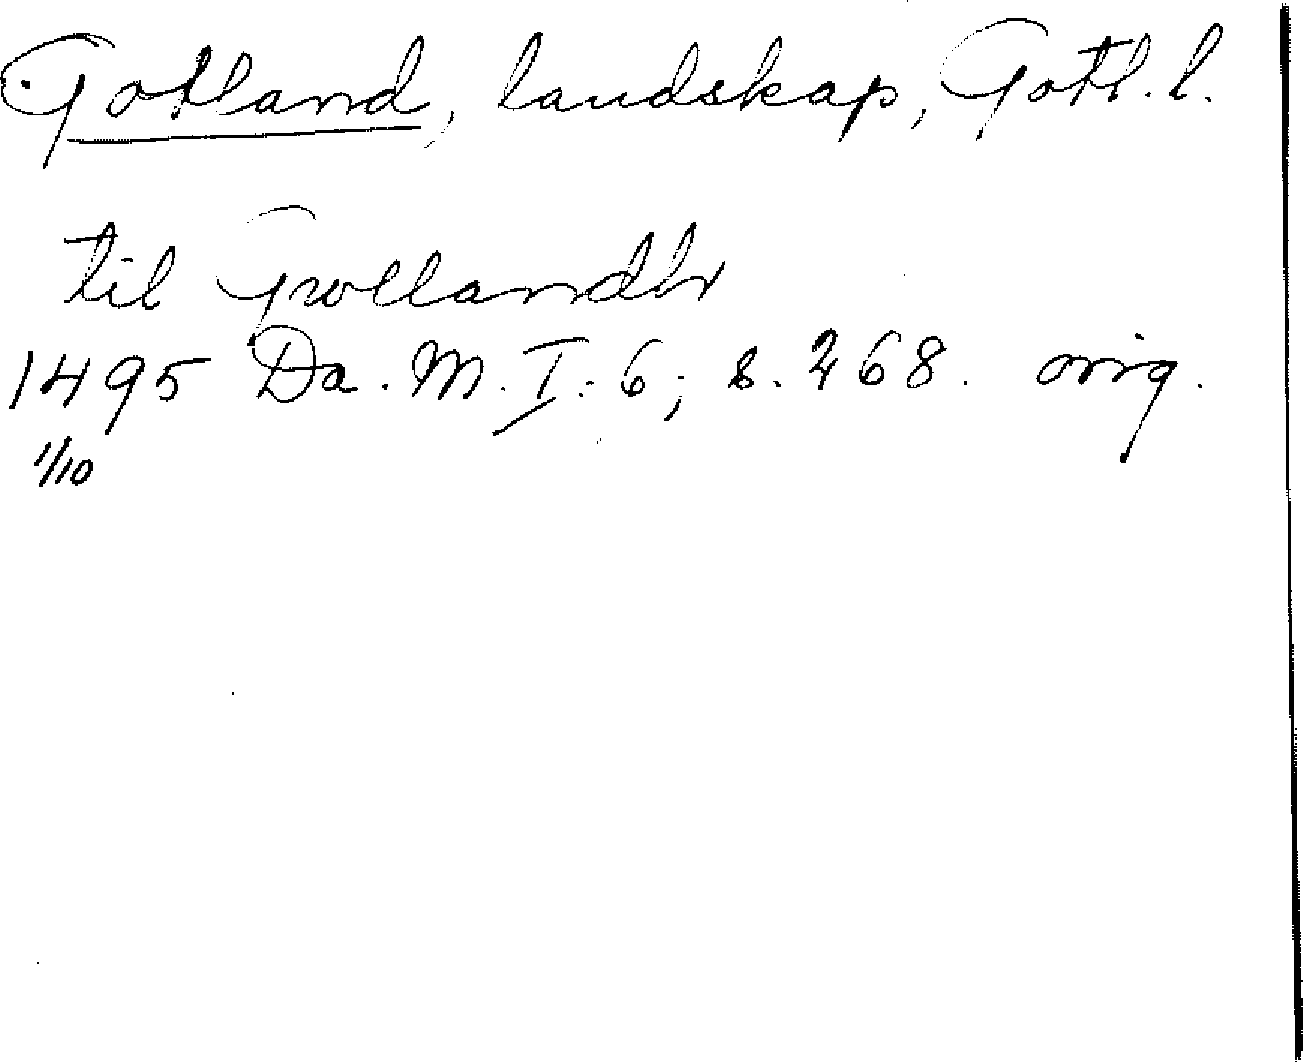 Gotland, landskap, Gotl. l.
til Gwllandh
1495 Da. M. I: 6; s. 268. orig.
1/10